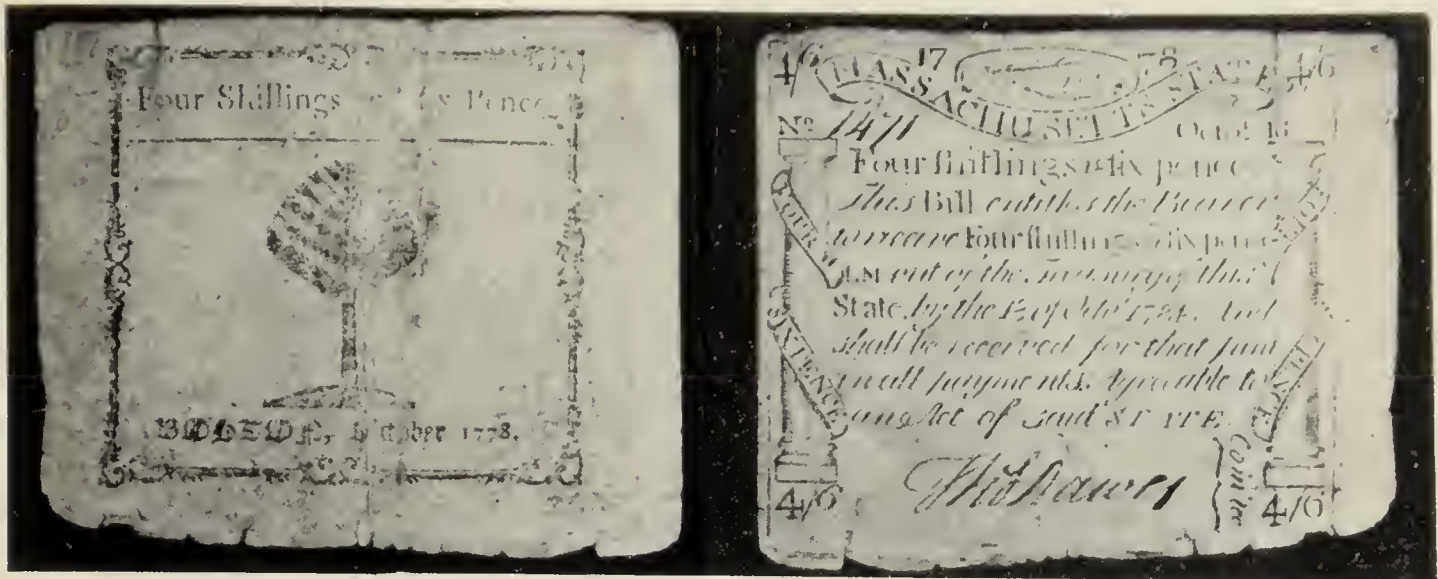 Four Shillings Pence
BOSTON, October 1778.
4/6 17 78 4/6
MASSACHUSETTS STATE
No 1471 Octob. 18
Four shillings & six pence
This Bill entitles the Bearer
to receive Four shillings & six pence
LM out of the Treasury of this
State, by the of 1784. And
shall be received for that sum
in all payments. Agreable to
an Act of said STATE
FOUR
SIX PENCE
PENCE
Com̃tee
4/6 Thos Dawes 4/6